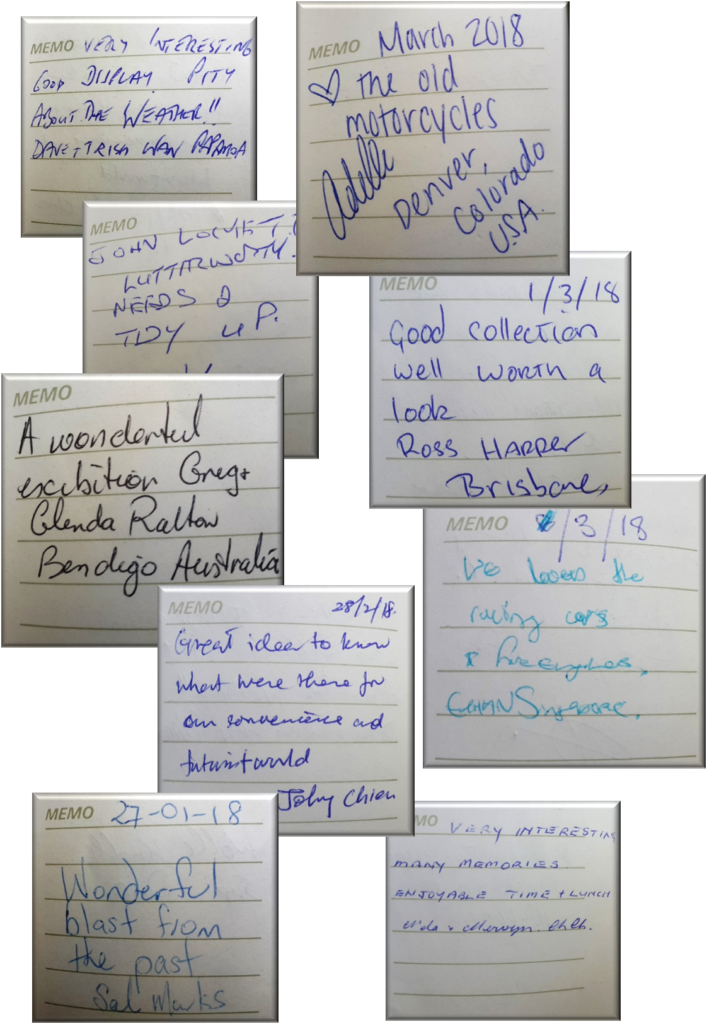 MEMO VERY INTERESTING
GOOD DISPLAY PITY
ABOUT THE WEATHER!!
DAVE + TRISH PAPAMOA
MEMO March 2018
♡ the old
motorcycles
Adelle Denver,
Colorado
USA.
MEMO
JOHN
LUTTERWORTH.
NEEDS A
TIDY UP.
MEMO
1/3/18
Good collection
well worth a
look
ROSS HARPER
Brisbane,
MEMO
A wonderful
exibition Greg +
Glenda
Bendigo Australia
MEMO /3/18
We loved the
racing cars
& fire engines,
Singapore.
MEMO 28/2/18.
Great idea to know
what were there for
our convenience and
futurist world
Chien
MEMO 27-01-18
Wonderful
blast from
the past
Sal Marks
MO VERY INTERESTIN
MANY MEMORIES
ENJOYABLE TIME + LUNCH